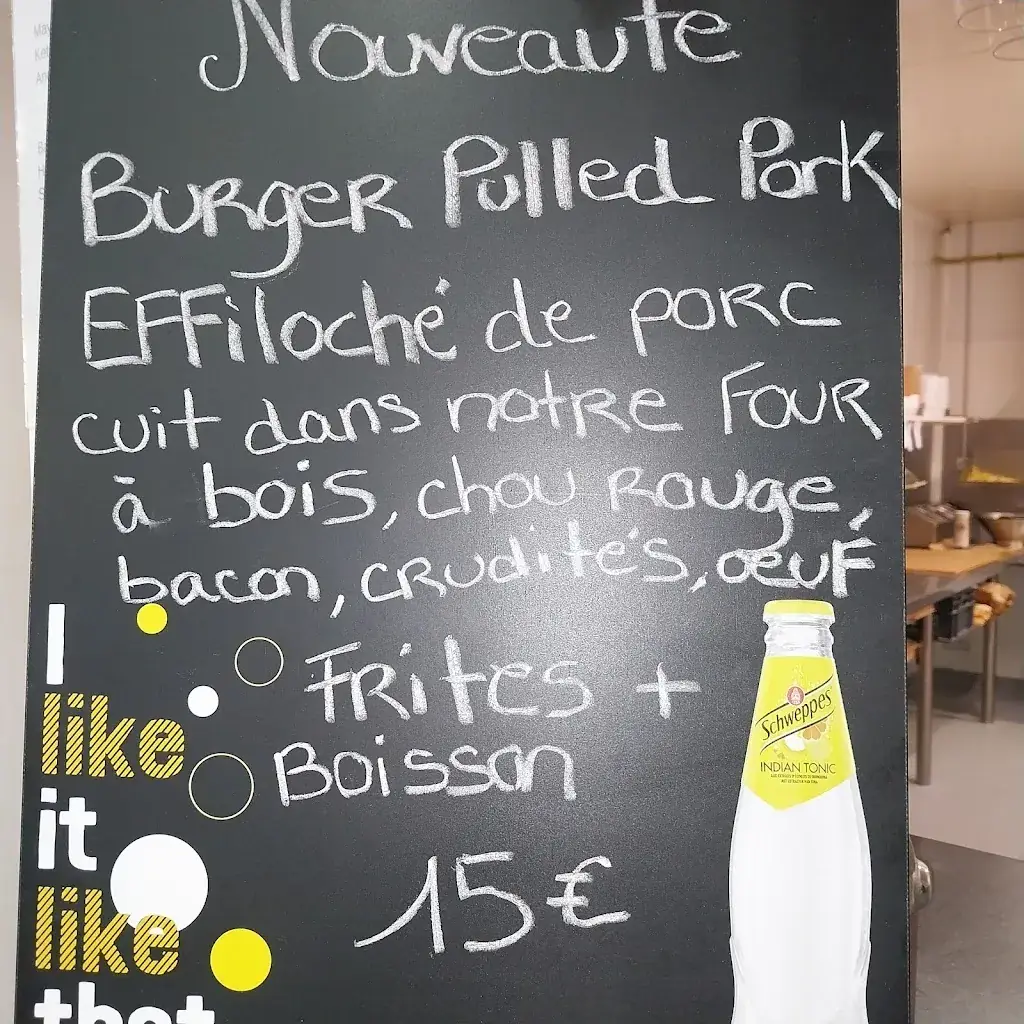 Nouveauté
Burger Pulled Pork
Effiloché de porc
cuit dans notre Four
à bois, chou Rouge,
bacon, crudités, oeuf
Frites +
Boisson
15€
I
like
it
like
that
Schweppes
INDIAN TONIC